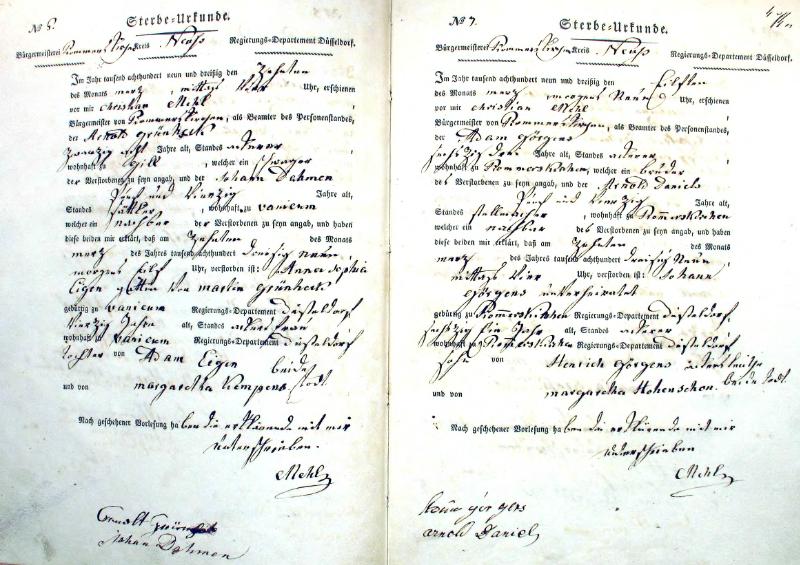 No 6.
Sterbe-Urkunde.
Bürgermeisterei Rommerskirchen Kreis Neuß Regierungs-Departement Düsseldorf.
Im Jahr tausend achthundert neun und dreißig den Zehnten
des Monats merz, mittags Uhr, erschienen
vor mir christian Mehl
Bürgermeister von Rommerskirchen, als Beamter des Personenstandes,
der Grünheck
zwanzig acht Jahre alt, Standes ackerer
wohnhaft zu Gill, welcher ein schwager
der Verstorbenen zu seyn angab, und der Johann Dahmen
Fünf und Vierzig Jahre alt,
Standes sattler, wohnhaft zu vanicum
welcher ein nachbar der Verstorbenen zu seyn angab, und haben
diese beiden mir erklärt, daß am Zehnten des Monats
merz des Jahres tausend achthundert dreisig neun
morgens Eilf Uhr, verstorben ist: Anna sophia
Eigen gattin von martin Grünheck
gebürtig zu vanicum Regierungs-Departement Düsseldorf
Vierzig Jahre alt, Standes
wohnhaft zu vanicum Regierungs-Departement Düsseldorf
tochter von Adam Eigen beide
und von margaretha Kempens todt
Nach geschehener Vorlesung haben die erklärende mit mir
unterschrieben.
Mehl
Johan Dahmen
No 7.
Sterbe-Urkunde.
Bürgermeisterei Rommerskirchen Kreis Neuß Regierungs-Departement Düsseldorf.
Im Jahr tausend achthundert neun und dreißig den Eilften
des Monats merz, morgens Neun Uhr, erschienen
vor mir christian Mehl
Bürgermeister von Rommerskirchen, als Beamter des Personenstandes,
der Adam Görgens
sechszig drei Jahre alt, Standes ackerer
wohnhaft zu Rommerskirchen, welcher ein bruder
des Verstorbenen zu seyn angab, und der Arnold Daniels
Fünf und Vierzig Jahre alt,
Standes stellmacher, wohnhaft zu Rommerskirchen
welcher ein nachbar des Verstorbenen zu seyn angab, und haben
diese beiden mir erklärt, daß am Zehnten des Monats
merz des Jahres tausend achthundert dreisig Neun
mittags Vier Uhr, verstorben ist: Johann
Görgens unverheirathet
gebürtig zu Rommerskirchen Regierungs-Departement Düsseldorf,
sechszig Ein Jahr alt, Standes ackerer
wohnhaft zu Rommerskirchen Regierungs-Departement Düsseldorf
sohn von Henrich Görgens
und von margaretha Hohenschon beide todt.
Nach geschehener Vorlesung haben die erklärende mit mir
unterschrieben
Mehl
görgens
arnold Daniels